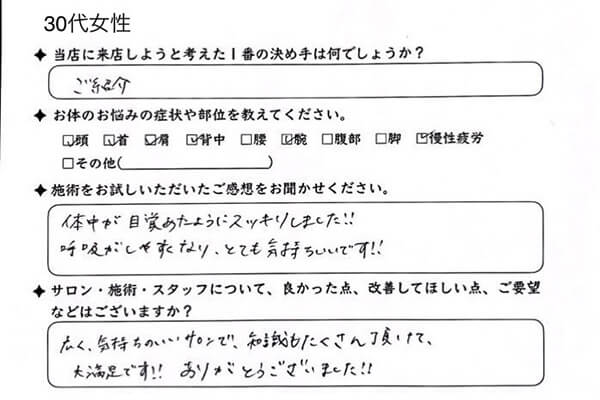 30代女性
✦ 当店に来店しようと考えた1番の決め手は何でしょうか？
ご紹介
✦ お体のお悩みの症状や部位を教えてください。
☑頭 ☑首 ☑肩 ☑背中 □腰 ☑腕 □腹部 □脚 ☑慢性疲労
□その他( )
✦ 施術をお試しいただいたご感想をお聞かせください。
体中が目覚めたようにスッキリしました!!
呼吸がしやすくなり、とても気持ちいいです!!
✦ サロン・施術・スタッフについて、良かった点、改善してほしい点、ご要望
などはございますか？
広く、気持ちのいいサロンで、知識もたくさん頂けて、
大満足です!! ありがとうございました!!